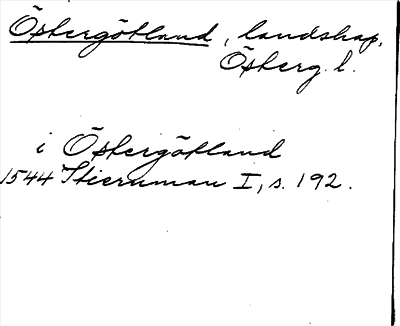 Östergötland, landskap,
Österg. l.
i Östergötland
1544 Stiernman I, s. 192.